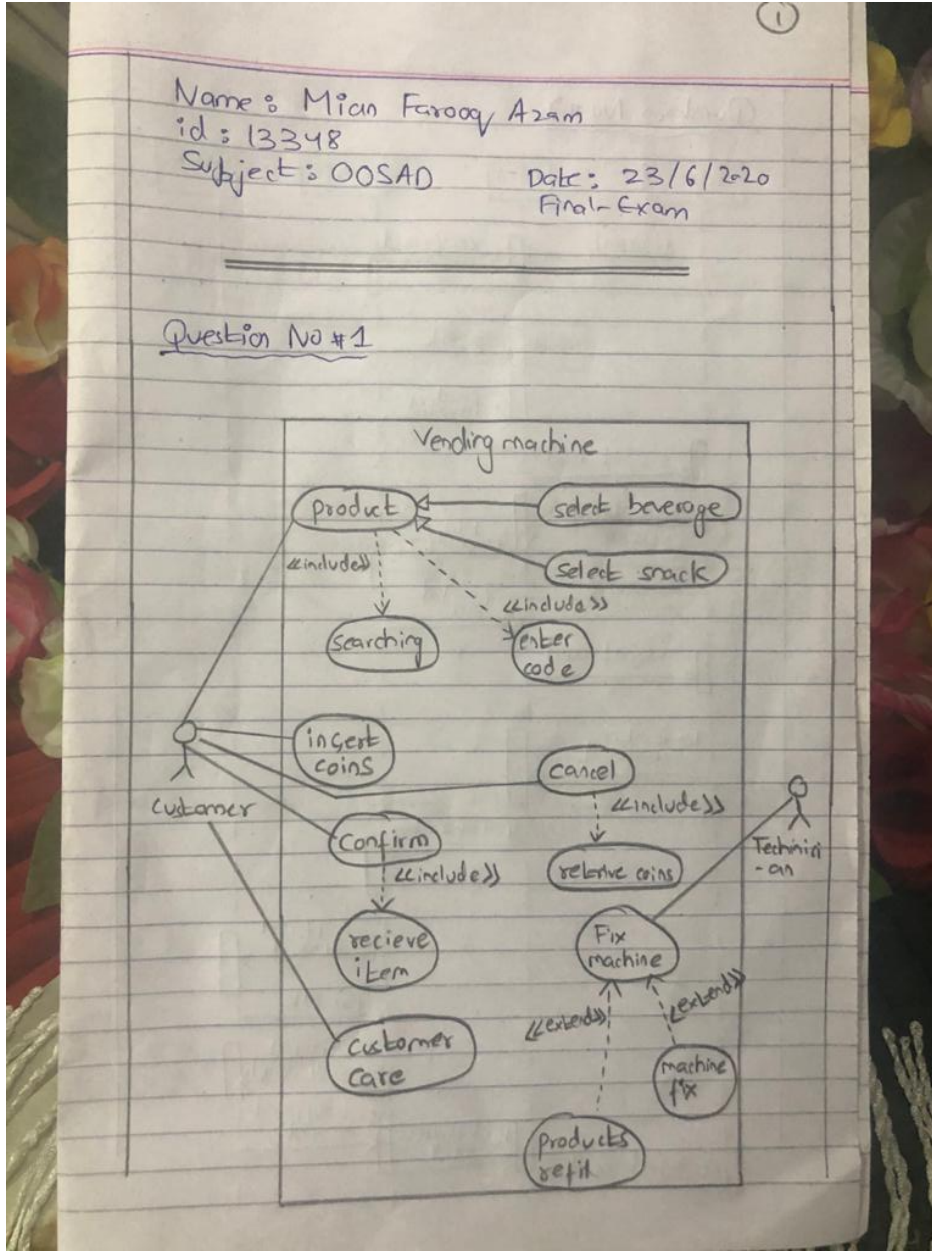 1
Name: Mian Farooq Azam
id: 13348
Subject: OOSAD Date: 23/6/2020
Final-Exam
Question No #1
Vending machine
product
select beverage
<<include>>
select snack
<<include>>
searching
enter
code
insert
coins
cancel
customer
<<include>>
Confirm
Technici
-an
<<include>>
coins
recieve
item
Fix
machine
<<extend>>
<<extend>>
customer
care
machine
fix
products
refil